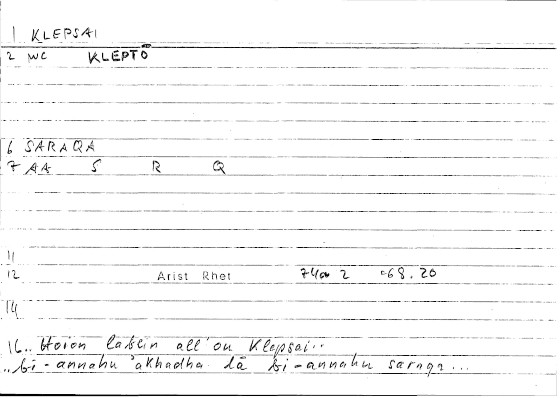 1 KLEPSAI
2 WC KLEPTŌ
6 SARAQA
7 AA S R Q
11
12 Arist Rhet 74a 2 68.20
14
16.. Hoion labein all'ou Klepsai..
..bi-annahu 'akhadha lā bi-annahu saraqa...